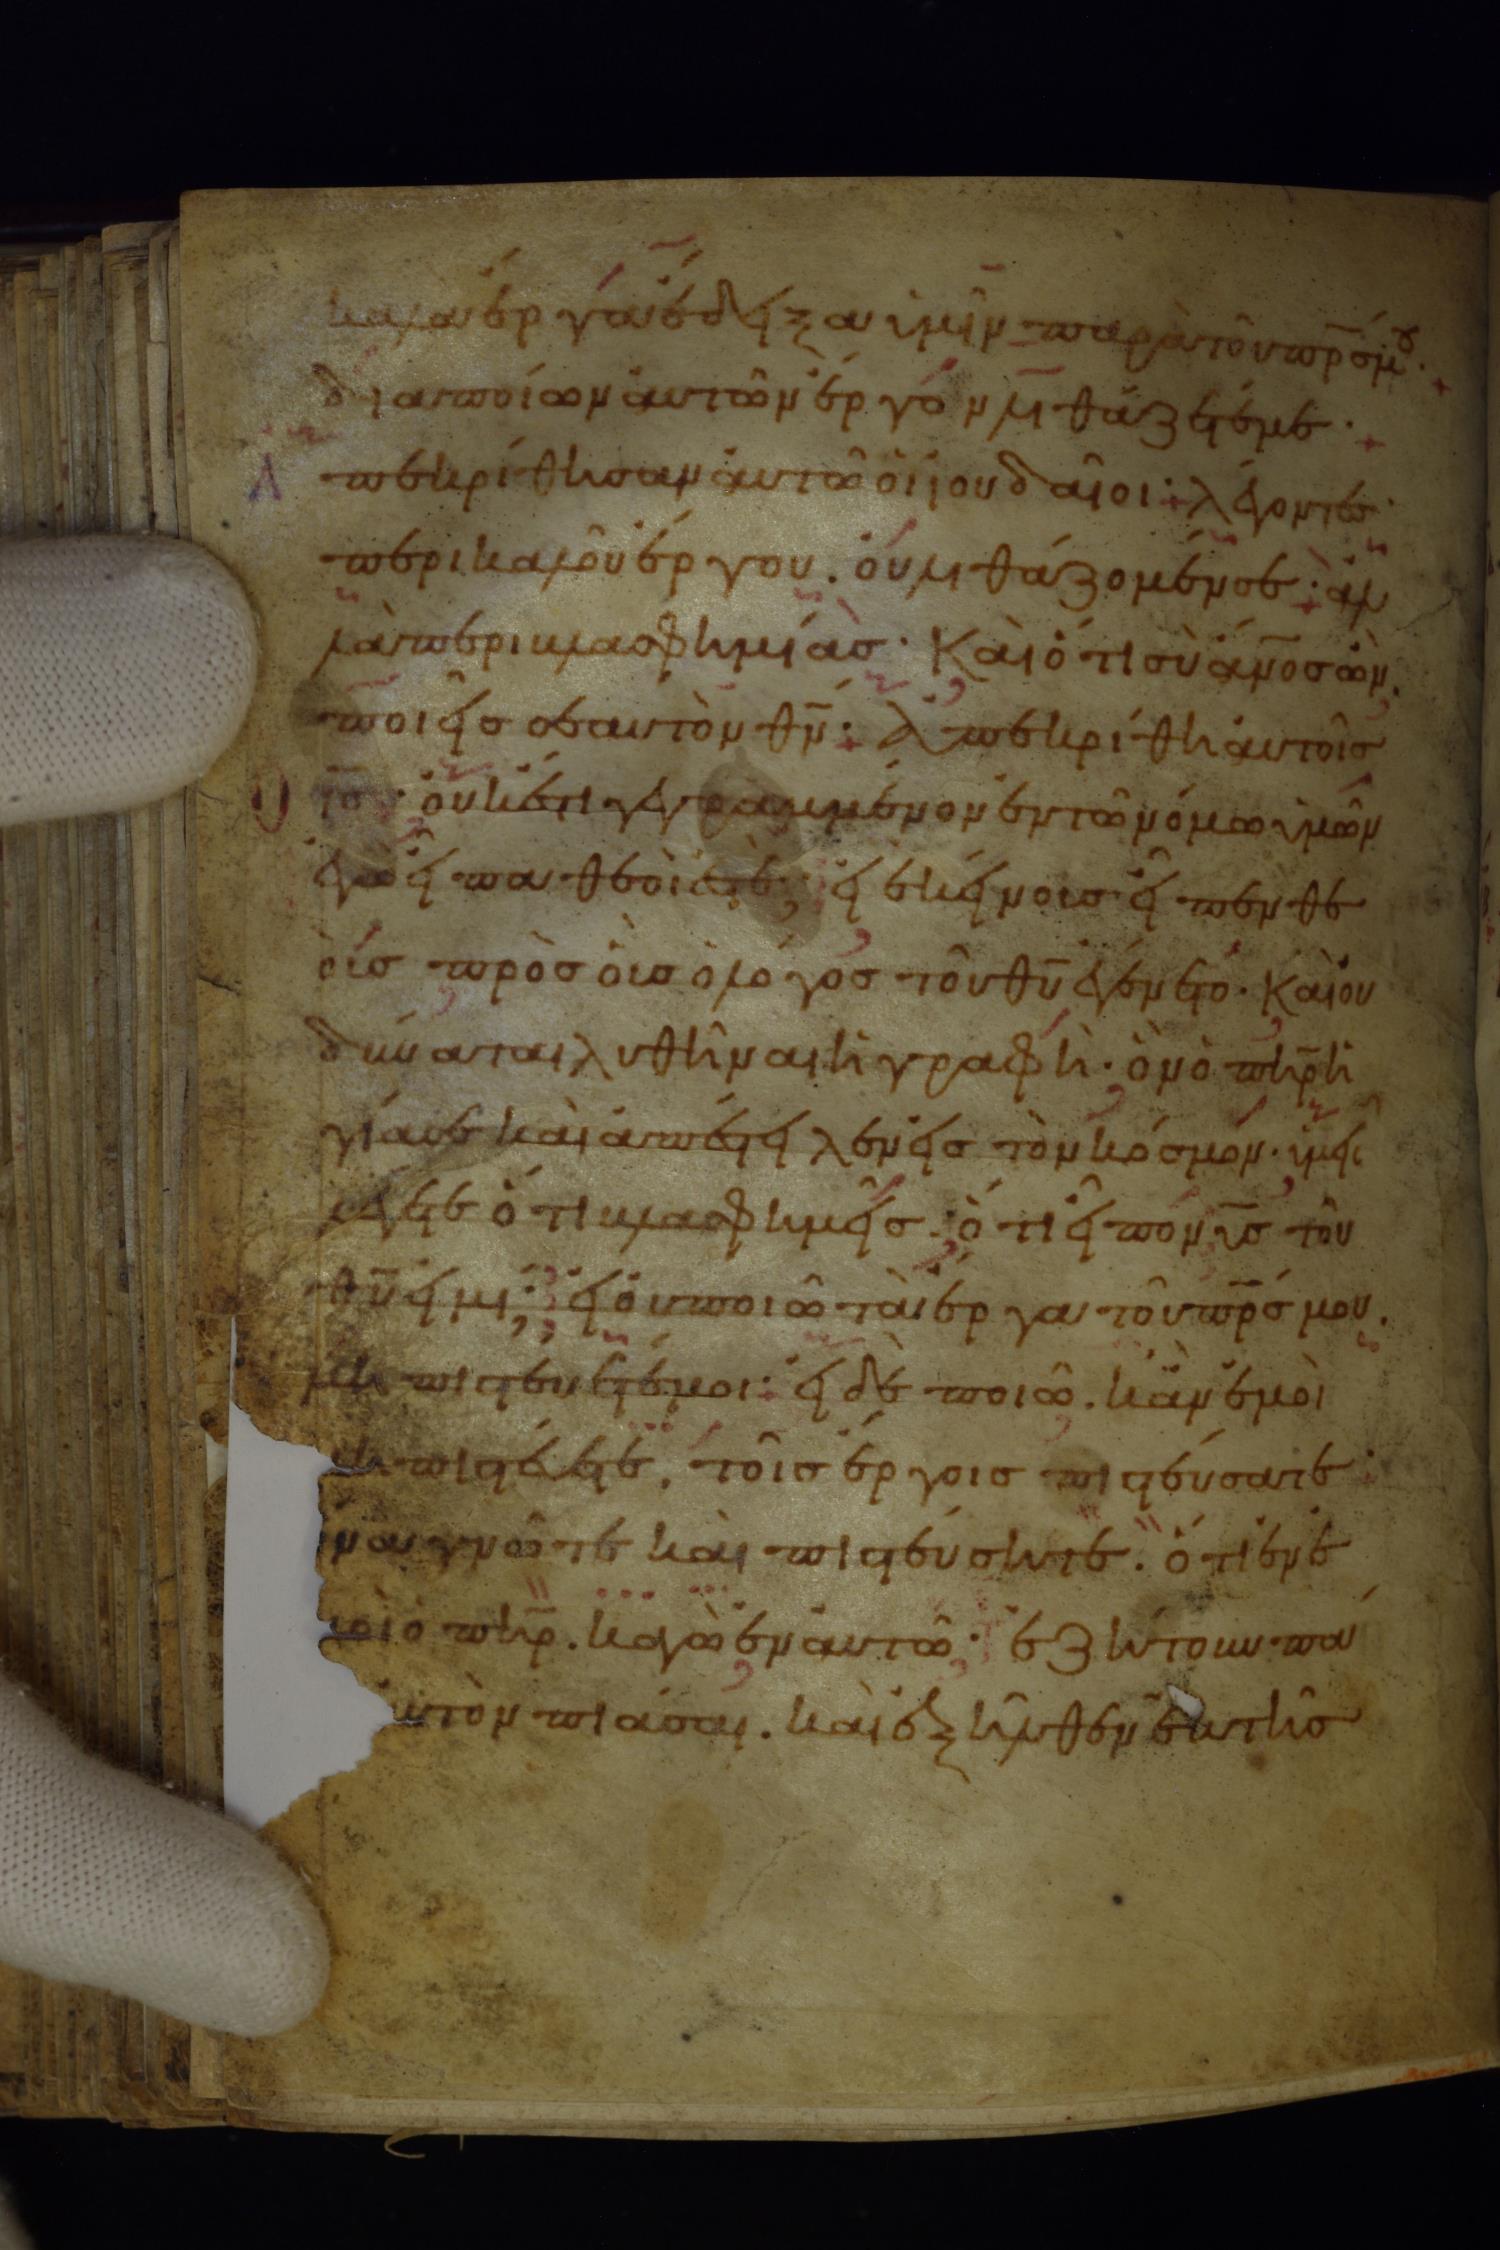 καλὰ ἔργα ἔδειξα ὑμῖν παρὰ τοῦ πρς μου.
διαποίων αὐτῶν ἔργον λιθάζετέ με.
Ἀπεκρίθησαν αὐτῶ οἱ ἰουδαῖοι· λέγοντες·
περι καλοῦ ἔργου. οὐ λιθάζομέν σε· ἀλ
λὰ περι βλασφημίας· Καὶ ὅτι σὺ ἀνος ὢν,
ποιεῖς σεαυτὸν θν· Ἀπεκρίθη αὐτοῖς
Ὁ ις· οὐκ ἔστι γεγραμμένον ἐν τῶ νόμω ὑμῶν
ἐγὼ εἶπα θεοί ἐστε; εἰ ἐκείνοις εἶπεν θε
οὺς πρὸς οὓς ὁ λόγος τοῦ θυ ἐγένετο. Καὶ οὐ
δύναται λυθῆναι ἡ γραφή· ὃν ὁ πηρ ἡ
γίασε καὶ ἀπέστειλεν εἰς τὸν κόσμον· ὑμεῖς
λέγετε ὅτι βλασφημεῖς. ὅτι εἶπον υς τοῦ
θυ εἰμι; εἰ οὐ ποιῶ τὰ ἔργα τοῦ πρς μου.
μὴ πιστεύετέ μοι· εἰ δὲ ποιῶ. κἂν ἐμοὶ
μὴ πιστεύετε, τοῖς ἔργοις πιστεύσατε·
ἵνα γνῶτε καὶ πιστεύσητε. ὅτι ἐν ἐ
μοὶ ὁ πηρ. κἀγὼ ἐν αὐτῶ· ἐζήτουν πά
αὐτὸν πιάσαι. καὶ ἐξῆλθεν ἐκ τῆς